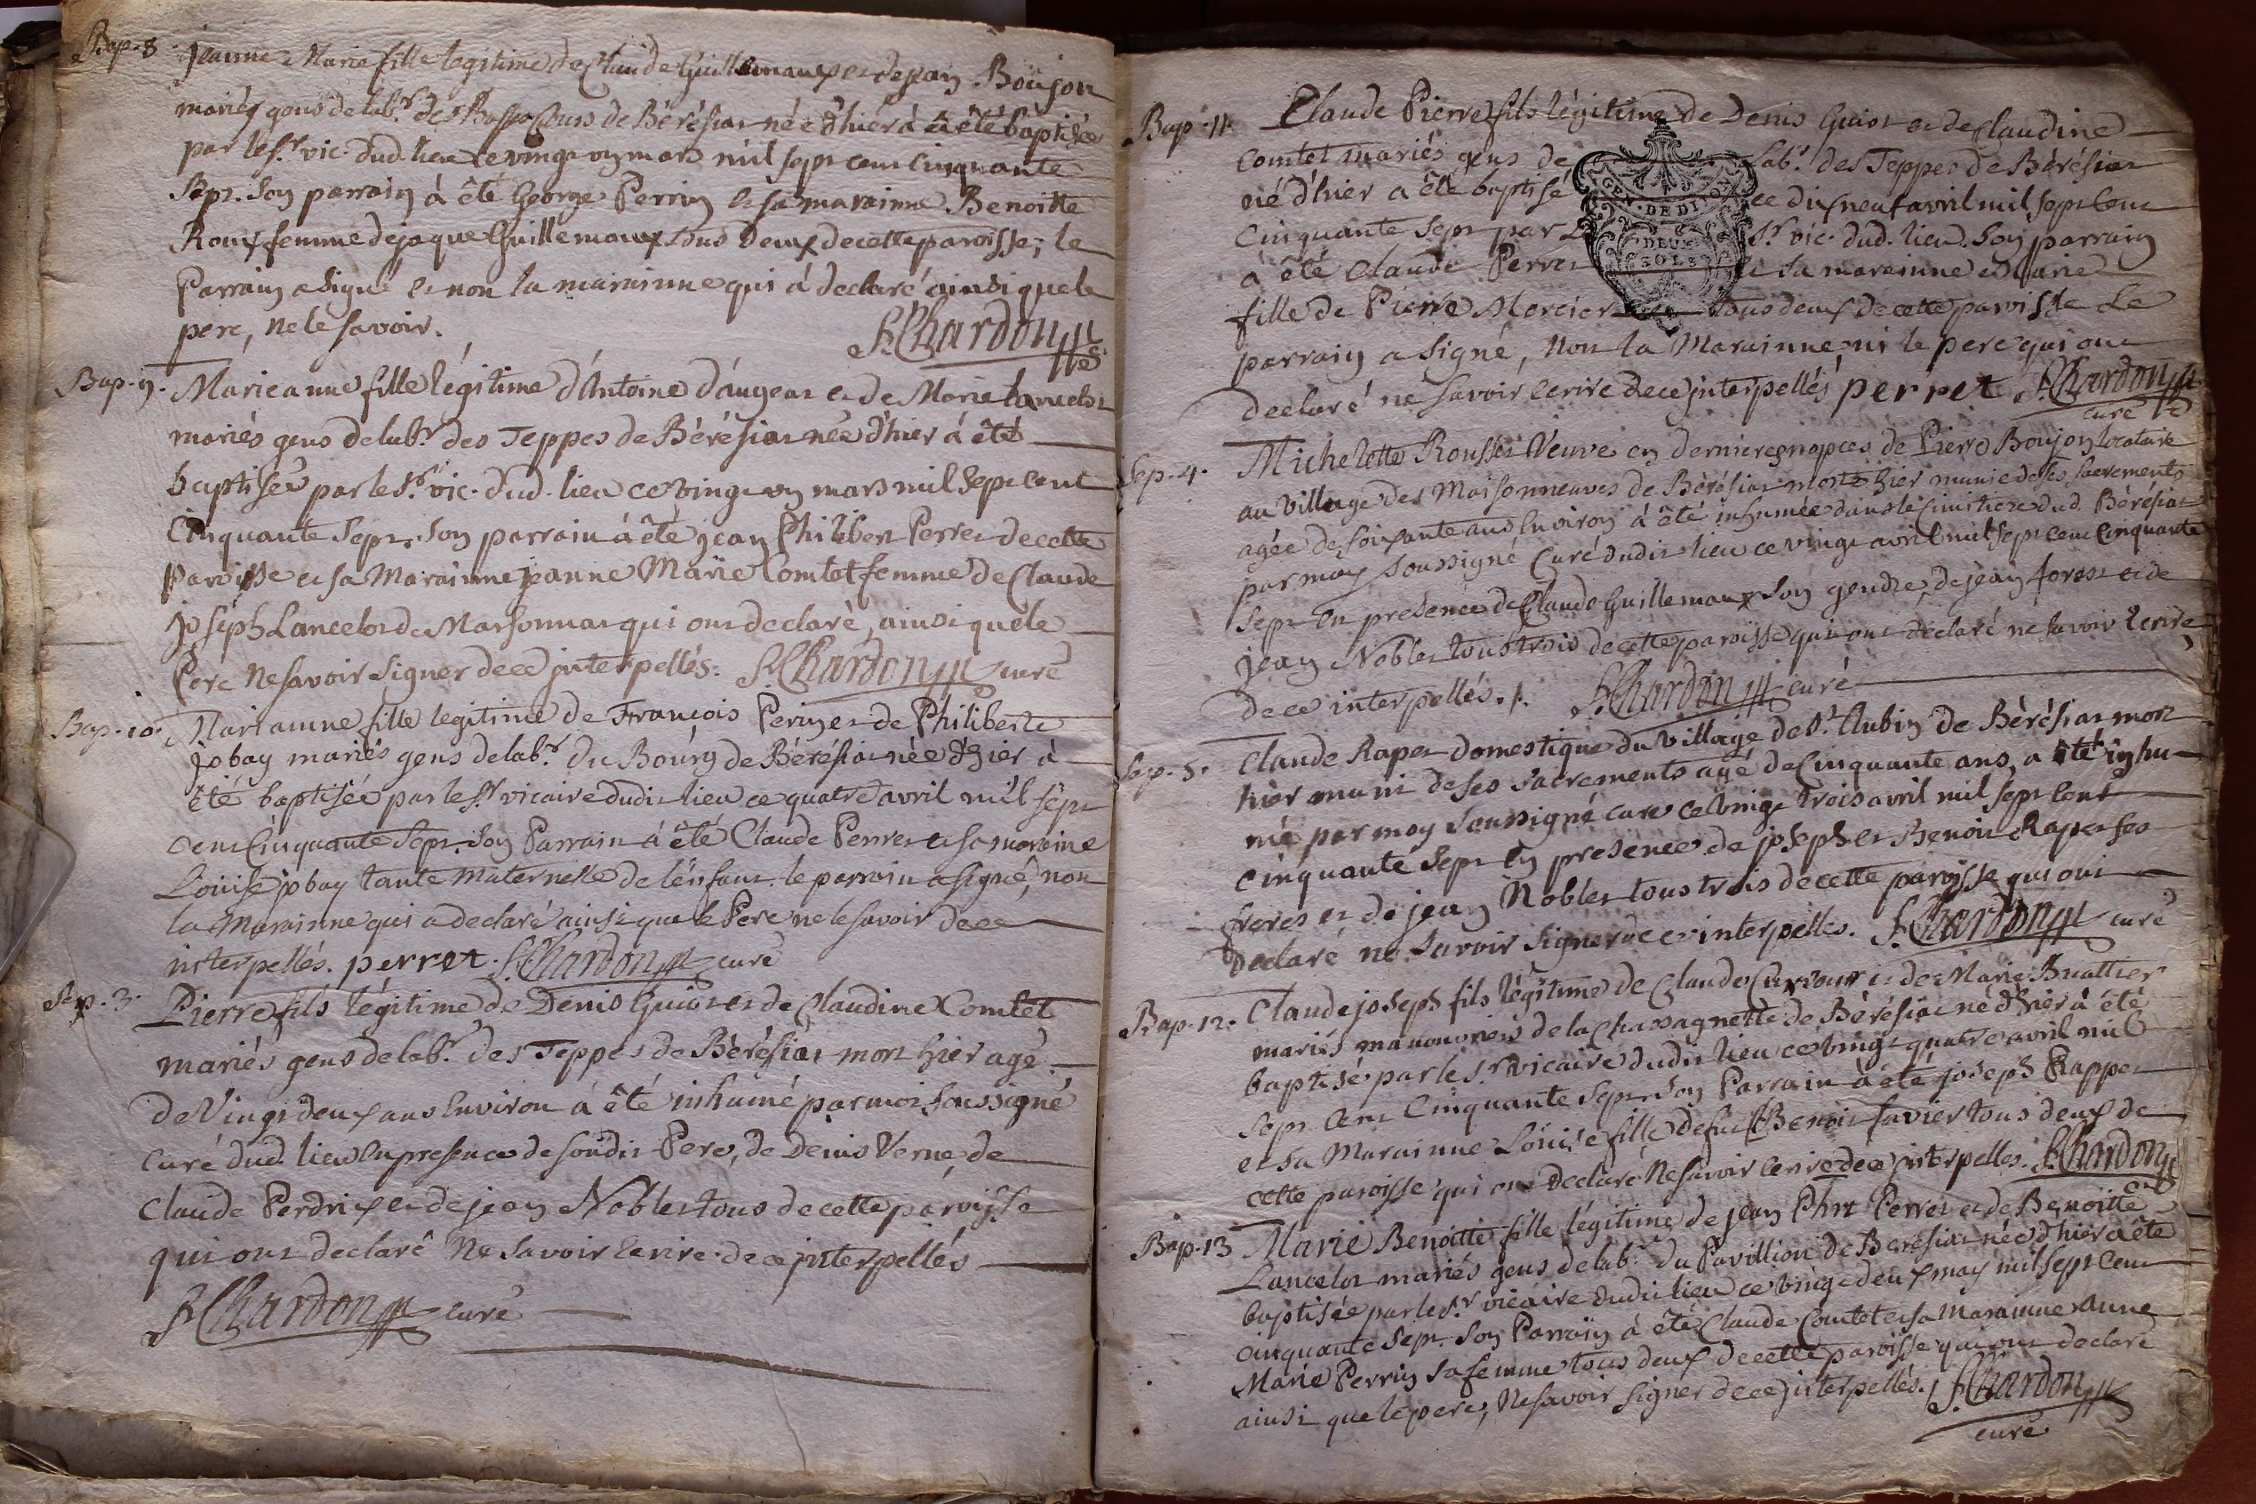 Bap. 8. jeanne Marie fille legitime de Claude Guillemaux et de jean Boujon
mariés gens de lab.r des Basses Cours de Bérésiat née d'hier à été baptisée
par le S.r vic. dud. lieu ce vingt un mars mil sept cent cinquante
Sept. Son parrain à été George Perrin et sa maraine Benoitte
Roux femme de jaque Guillemaux tous deux de cette paroisse; le
Parrain a signé et non la marainne qui à declaré ainsi que le
pere, ne le savoir. Chardon
Bap. 9. Marieanne fille légitime d'Antoine d'augeat et de Marie Lancelot
mariés gens de lab.r des Teppes de Bérésiat née d'hier à été
baptisée par le S.r vic. dud. lieu ce vingt un mars mil sept cent
Cinquante Sept. Son parrain à été jean Philibert Perret de cette
Paroisse et sa Marainne jeanne Marie Comtet femme de Claude
joseph Lancelot de Marsonnas qui ont declaré, ainsi que le
Pere ne savoir signer de ce interpellés. Chardon curé
Bap. 10. Marianne fille legitime de François Perin et de Philiberte
jobay mariés gens de lab.r du Bourg de Bérésiat née d'hier à
été baptisée par le S.r vicaire dudit lieu ce quatre avril mil sept
cent Cinquante Sept. Son Parrain à été Claude Perret et sa maraine
Louise jobay tante maternelle de l'enfant. le parrain a signé, non
la Marainne qui a declaré ainsi que le Pere ne le savoir de ce
interpellés. perret. Chardon curé
Sep. 3. Pierre fils légitime de Denis Guiot et de Claudine Comtet
mariés gens de lab.r des Teppes de Bérésiat mort hier agé
de Vingt deux ans Environ à été inhumé par moi soussigné
Curé dud. lieu en presence de sondit Pere, de Denis Verne, de
Claude Perdrix et de jean Noblet tous de cette paroisse
qui ont declaré ne savoir écrire de ce interpellés
Chardon curé
Bap. 11. Claude Pierre fils légitime de Denis Guiot et de Claudine
Comtet mariés gens de lab.r des Teppes de Bérésiat
né d'hier a été baptisé ce dix neuf avril mil sept cent
Cinquante sept par le S.r vic. dud. lieu. Son parrain
à été Claude Perret et sa marainne Marie
fille de Pierre Mercier tous deux de cette paroisse Le
parrain a signé, non la Marainne ni le pere qui ont
declaré ne savoir ecrire de ce interpellés perret Chardon
curé
GEN. DE DIJON
DEUX
SOLS
Sep. 4. Michelette Rousset Veuve en dernieres nopces de Pierre Boujon locataire
au village des Maisonneuves de Bérésiat morte hier munie de ses sacrements
agée de soixante ans Environ à été inhumée dans le cimitiere dud. Bérésiat
par moy soussigné Curé dudit lieu ce vingt avril mil sept cent cinquante
sept en presence de Claude Guillemaux son gendre, de jean forest et de
jean Noblet tous trois de cette paroisse qui ont declaré ne savoir Ecrire
de ce interpellés. Chardon curé
Sep. 5. Claude Rapet domestique du village de S.t Aubin de Bérésiat mort
hier muni de ses sacrements agé de Cinquante ans a été inhu-
mé par moy soussigné curé ce vingt trois avril mil sept cent
cinquante sept en presence de joseph et Benoit Rapet ses
freres et de jean Noblet tous trois de cette paroisse qui ont
declaré ne savoir signer de ce interpellés. Chardon curé
Bap. 12. Claude joseph fils légitime de Claude et de Marie Buathier
mariés manouvriers de la Chassagnette de Bérésiat né d'hier à été
baptisé par le S.r vicaire dudit lieu ce vingt quatre avril mil
sept cent Cinquante sept. Son Parrain à été joseph Rappet
et sa Marainne Louise fille de fut Benoit favier tous deux de
cette paroisse qui ont declaré ne savoir écrire de ce interpellés. Chardon
curé
Bap. 13 Marie Benoitte fille légitime de jean Phrt Perret et de Benoitte
Lancelot mariés gens de lab.r du Pavillion de Bérésiat née d'hier a été
baptisée par le S.r vicaire dudit lieu ce vingt deux may mil sept cent
cinquante sept. Son Parrain à été Claude Comtet et sa Marainne Anne
Marie Perrin sa femme tous deux de cette paroisse qui ont declaré
ainsi que le pere, ne savoir signer de ce interpellés. Chardon
curé